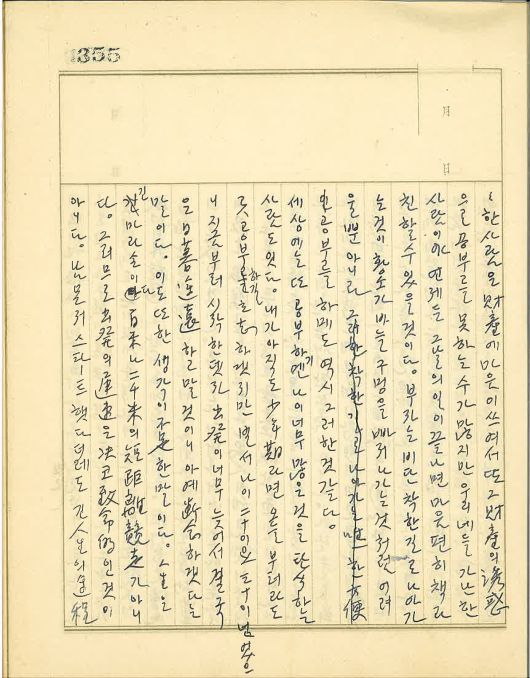 1355
月
日
한사람은 財産에 마음이 쓰여서 또 그 財産의 誘惑
으로 공부를 못하는 수가 많지만 우리네들 가난한
사람이야 언제든 그날의 일이 끝나면 마음 편히 책과
친할 수 있을 것이다. 부자는 비단 착한 길로 나아가
는 것이 황소가 바늘구멍을 빠져나가는 것처럼 어려
울 뿐 아니라
공부를 하에도 역시 그러한 것 같다.
세상에는 또 공부하기엔 나이 너무 많은 것을 탄식하는
사람도 있다. 내가 아직도 少年期라면 오늘부터라도
곳 공부를 하겠지만 벌서 나이 二十이요 三十이 넘었으
니 지금부터 시작한댓자 出発이 너무 늦어서 결국
은 日暮途遠하고 말 것이니 아예 断念하겠다는
말이다. 이도 또한 생각이 不足한 말이다. 人生은
긴 마라손이다 百米나 二千米의 短距離競走가 아니
다. 그러므로 出発의 遅速은 決코 致命的인 것이
아니다. 남 몰러 스타-트했다 더레도 긴 人生의 道程